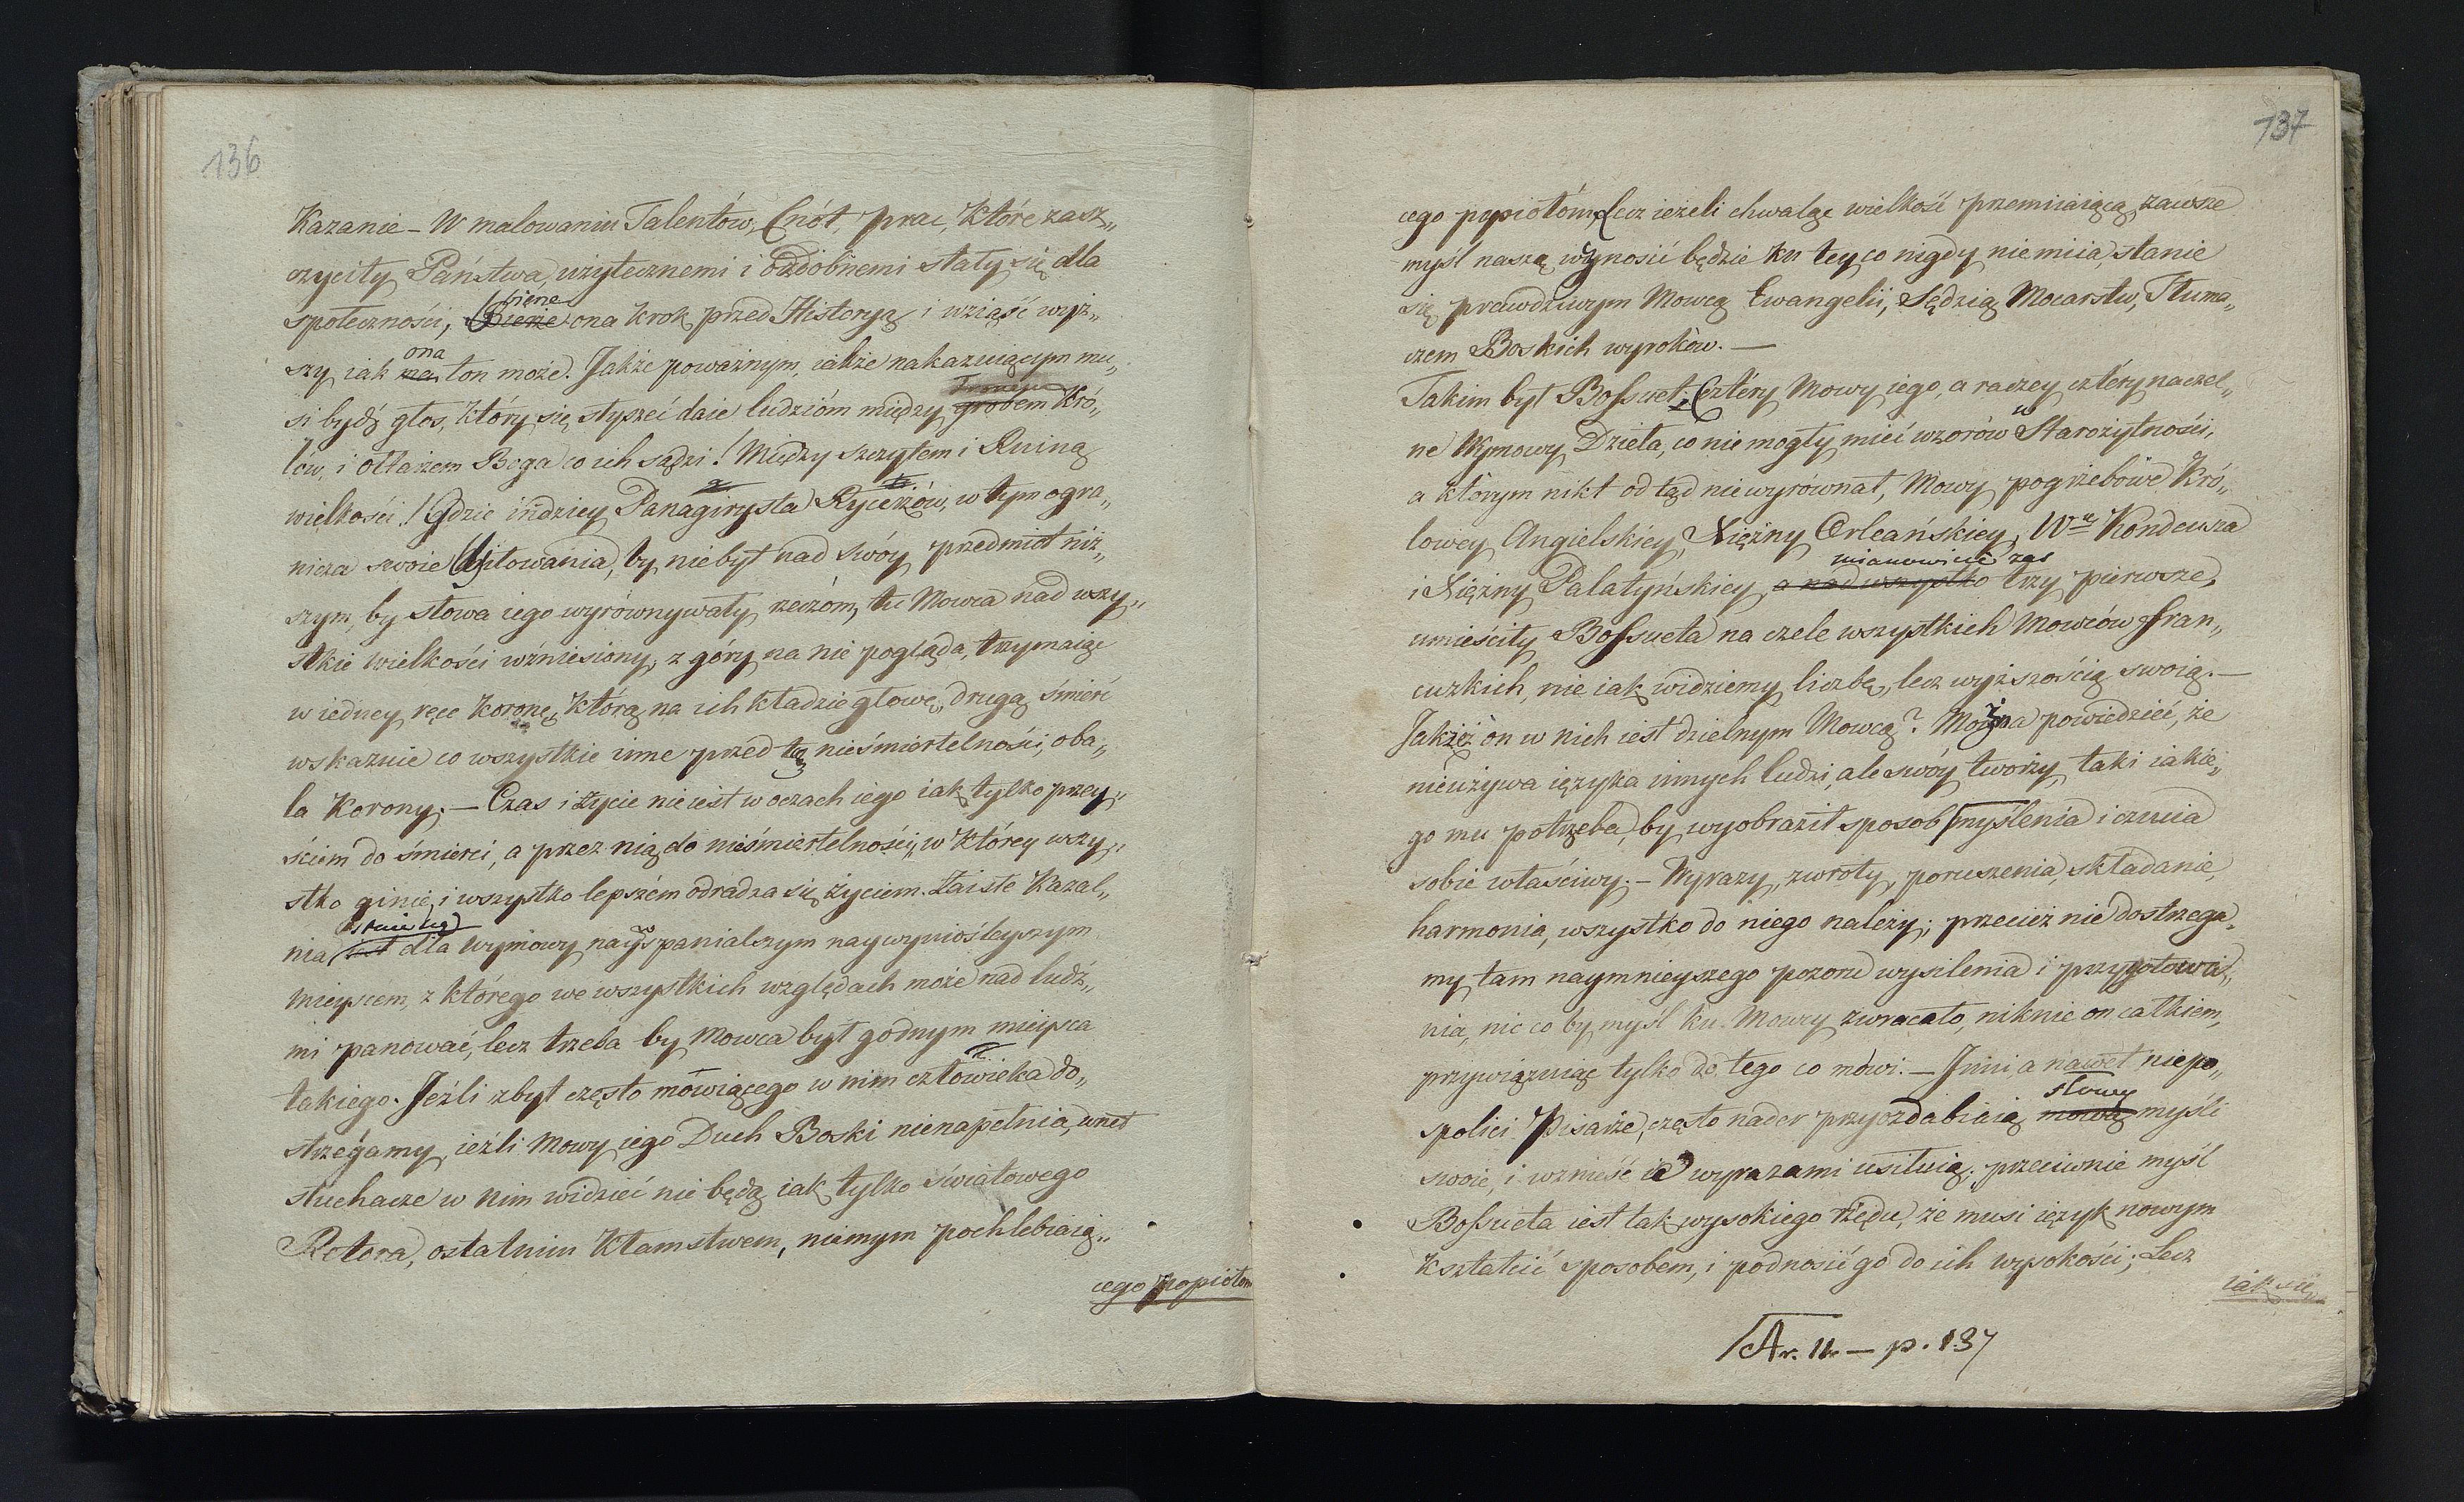 136
Kazanie – W malowaniu Talentów, Cnót, prac, które zasz„
czyciły Państwa, użytecznemi i ozdobnemi stały się dla
bierze
społeczności, Bierze ona krok przed Historyą i wziąść wyż„
ona
szy iak ma ton może. Jakże poważnym, iakże nakazuiącym mu„
Trumną
si bydź głos, który się słyszeć daie ludzióm między grobem Kró„
lów, i ołtarzem Boga co ich sądzi! Między szczytem i Ruiną
wielkości! Gdzie indziey Panagirysta Rycerzów, w tym ogra„
nicza swoie Usiłowania, by nie był nad swóy przedmiot niż„
szym, by słowa iego wyrównywały rzeczóm, tu Mowca nad wszy„
stkie wielkości wźniesiony, z góry na nie pogląda, trzymaiąc
w iedney ręce koronę, którą na ich kładzie głowę, drugą śmierć
wskazuie co wszystkie inne przed tą nieśmiertelności, oba„
la Korony. – Czas i życie nie iest w oczach iego iak tylko przey„
ściem do śmierci, a przez nią do nieśmiertelności, w którey wszy„
stko ginie, i wszystko lepszém odradza się życiem. Zaiste Kazal„
nia iest dla wymowy nayspanialszym naywyniośleyszym
mieyscem, z którego we wszystkich względach może nad ludź„
mi panować, lecz trzeba by Mowca był godnym mieysca
takiego. Jeźli zbyt często mówiącego w nim człowieka do„
strzegamy, ieźli Mowy iego Duch Boski nienapełnia, wnet
słuchacze w nim widzieć nie będą iak tylko światowego
Retora, ostatnim kłamstwem, niemym pochlebiaią„
cego popiołom
137
cego popiołóm, Lecz ieżeli chwaląc wielkość przemiiaiącą, zawsze
myśl naszą wznosić będzie ku tey co nigdy nie miia, stanie
się prawdziwym Mowcą Ewangelii, Sędzią Mocarstw, Tłuma„
czem Boskich wyroków. –
Takim był Bossuet, Cztéry Mowy iego, a raczey cztéry naczel„
w
ne Wymowy Dzieła, co nie mogły mieć wzorów Starożytności,
a którym nikt od tąd niewyrównał, Mowy pogrzebowe Kró„
lowey Angielskiey, Xiężny Orleańskiey, Wgo Kondeusza
mianowicie zaś
i Xiężny Palatyńskiey, a nad wszystko trzy pierwsze,
umieściły Bossueta na czele wszystkich Mowców fran„
cuzkich, nie iak widziemy liczbą, lecz wyższością swoią. –
Jakżeż ón w nich iest dzielnym Mowcą? Można powiedzieć, że
nieużywa ięzyka innych ludzi, ale swóy tworzy, taki iakie„
go mu potrzeba, by wyobraził sposob myślenia i czucia
sobie właściwy. – Wyrazy, zwroty, poruszenia, składanie,
harmonia, wszystko do niego należy; przecież nie dostrzega„
my tam naymnieyszego pozoru wysilenia i przygotowa„
nia, nic co by myśl ku Mowcy zwracało, niknie on całkiem,
przywiązuiąc tylko do tego co mówi. – Inni, a nawet niepo„
słowy
spolici Pisarze, często nader przyozdabiaią mową myśli
swoie, i wznieść ie wyrazami usiłuią; przeciwnie myśl
Bossueta iest tak wysokiego rzędu, że musi ięzyk nowym
kształcić sposobem, i podnosić go do ich wysokości; Lecz
iak się
Ar. 11. – p. 137